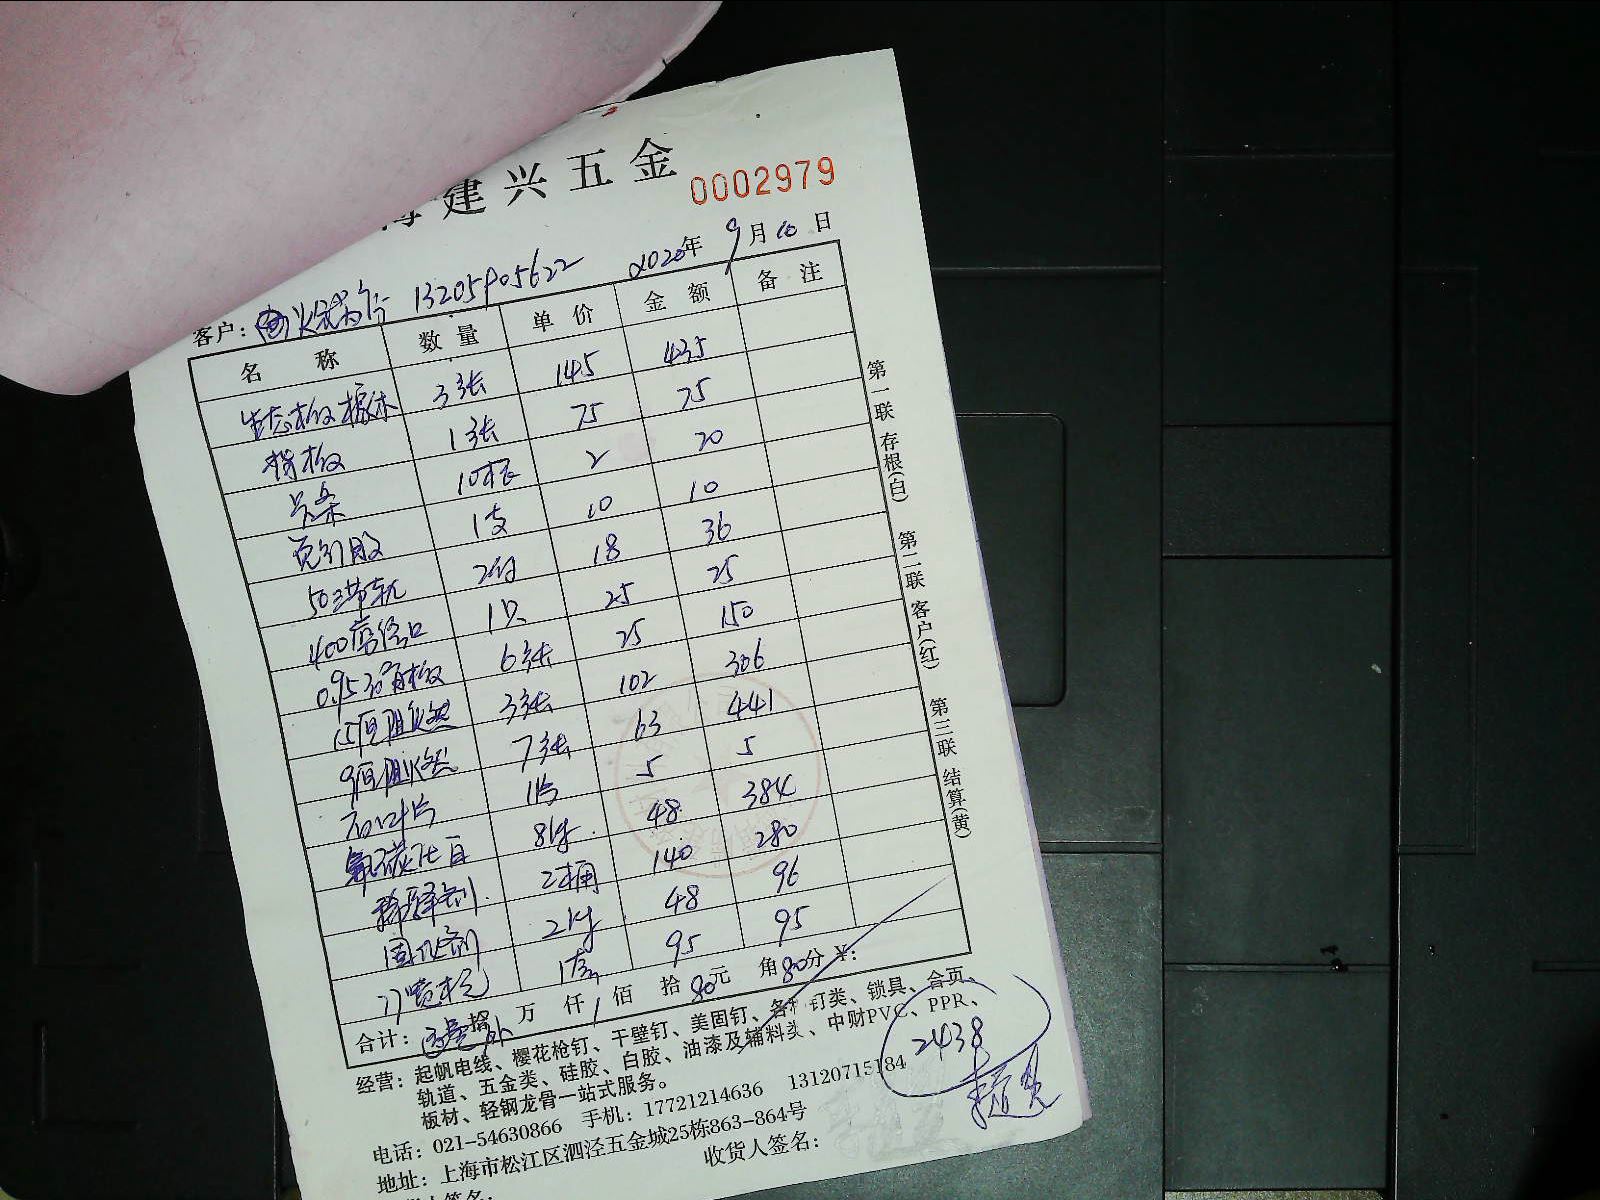 建兴五金
0002979
2020年 9月10日
客户： 13205905622
名称 数量 单价 金额 备注
生态板橡木 3张 145 435
1张 75 75
10根 2 20
免钉胶 1支 10 10
三节轨 2付 18 36
400 1只 25 25
0.95 石膏板 6张 25 150
15厘阻燃 3张 102 306
9厘阻燃 7张 63 441
1片 5 5
氟碳 8kg 48 384
稀释剂 2桶 140 280
固化剂 2kg 48 96
喷枪 1 95 95
合计： 拾 万 仟 1 佰 拾 80元 角 80分 ￥：
2438
经营：起帆电线、樱花枪钉、干壁钉、美固钉、各种钉类、锁具、合页、
轨道、五金类、硅胶、白胶、油漆及辅料类、中财PVC、PPR、
板材、轻钢龙骨一站式服务。
电话：021-54630866 手机：17721214636 13120715184
地址：上海市松江区泗泾五金城25栋863-864号
收货人签名：
人签名：
第一联 存根(白) 第二联 客户(红) 第三联 结算(黄)